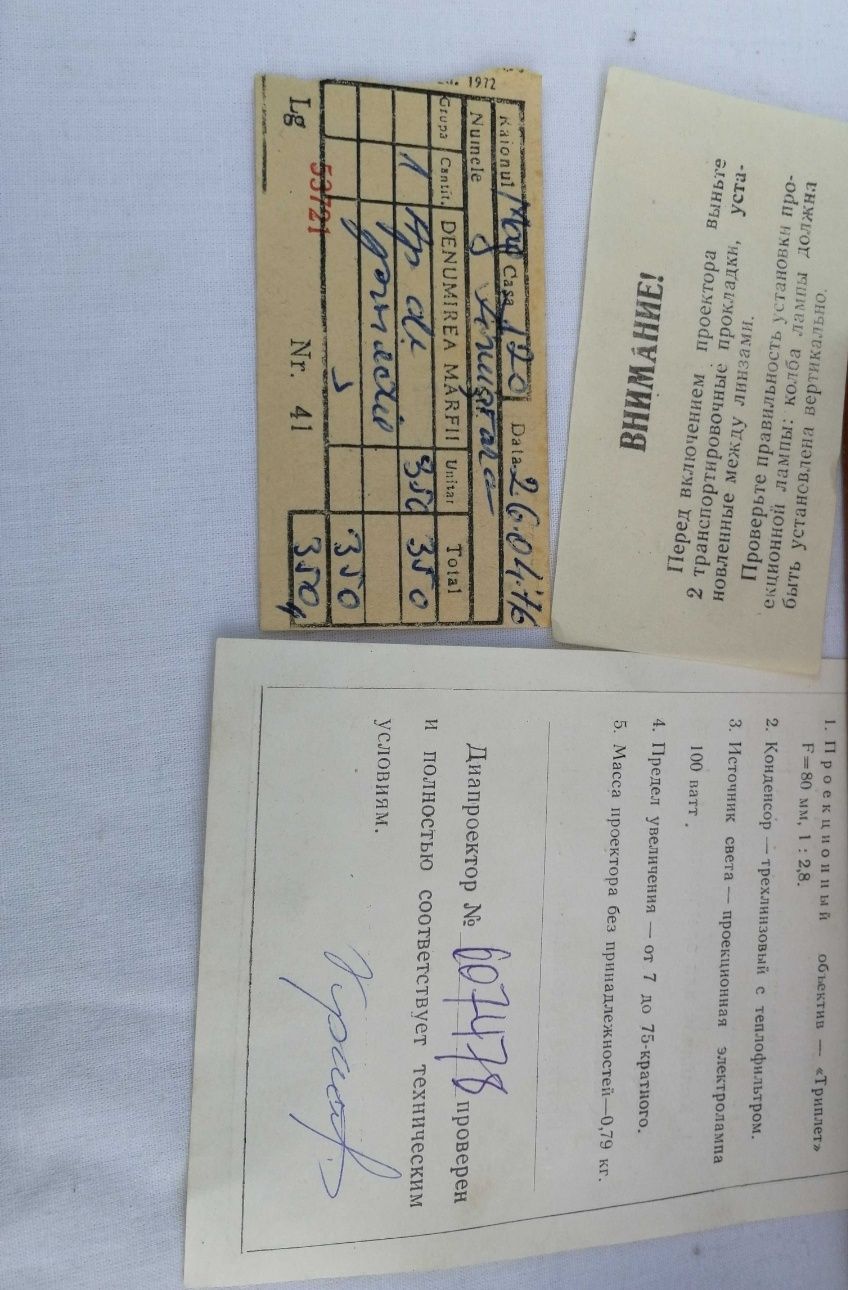 1972
Raionul Casa 120 Data 26.04.76
Numele
Grupa Cantit. DENUMIREA MĂRFII Unitar Total
1 350 350
350
350
Lg 53721 Nr. 41
ВНИМАНИЕ!
Перед включением проектора выньте
2 транспортировочные прокладки, уста-
новленные между линзами.
Проверьте правильность установки про-
екционной лампы: колба лампы должна
быть установлена вертикально.
1. Проекционный объектив — «Триплет»
F=80 мм, 1 : 2,8.
2. Конденсор — трехлинзовый с теплофильтром.
3. Источник света — проекционная электролампа
100 ватт.
4. Предел увеличения — от 7 до 75-кратного.
5. Масса проектора без принадлежностей—0,79 кг.
Диапроектор № 607478 проверен
и полностью соответствует техническим
условиям.